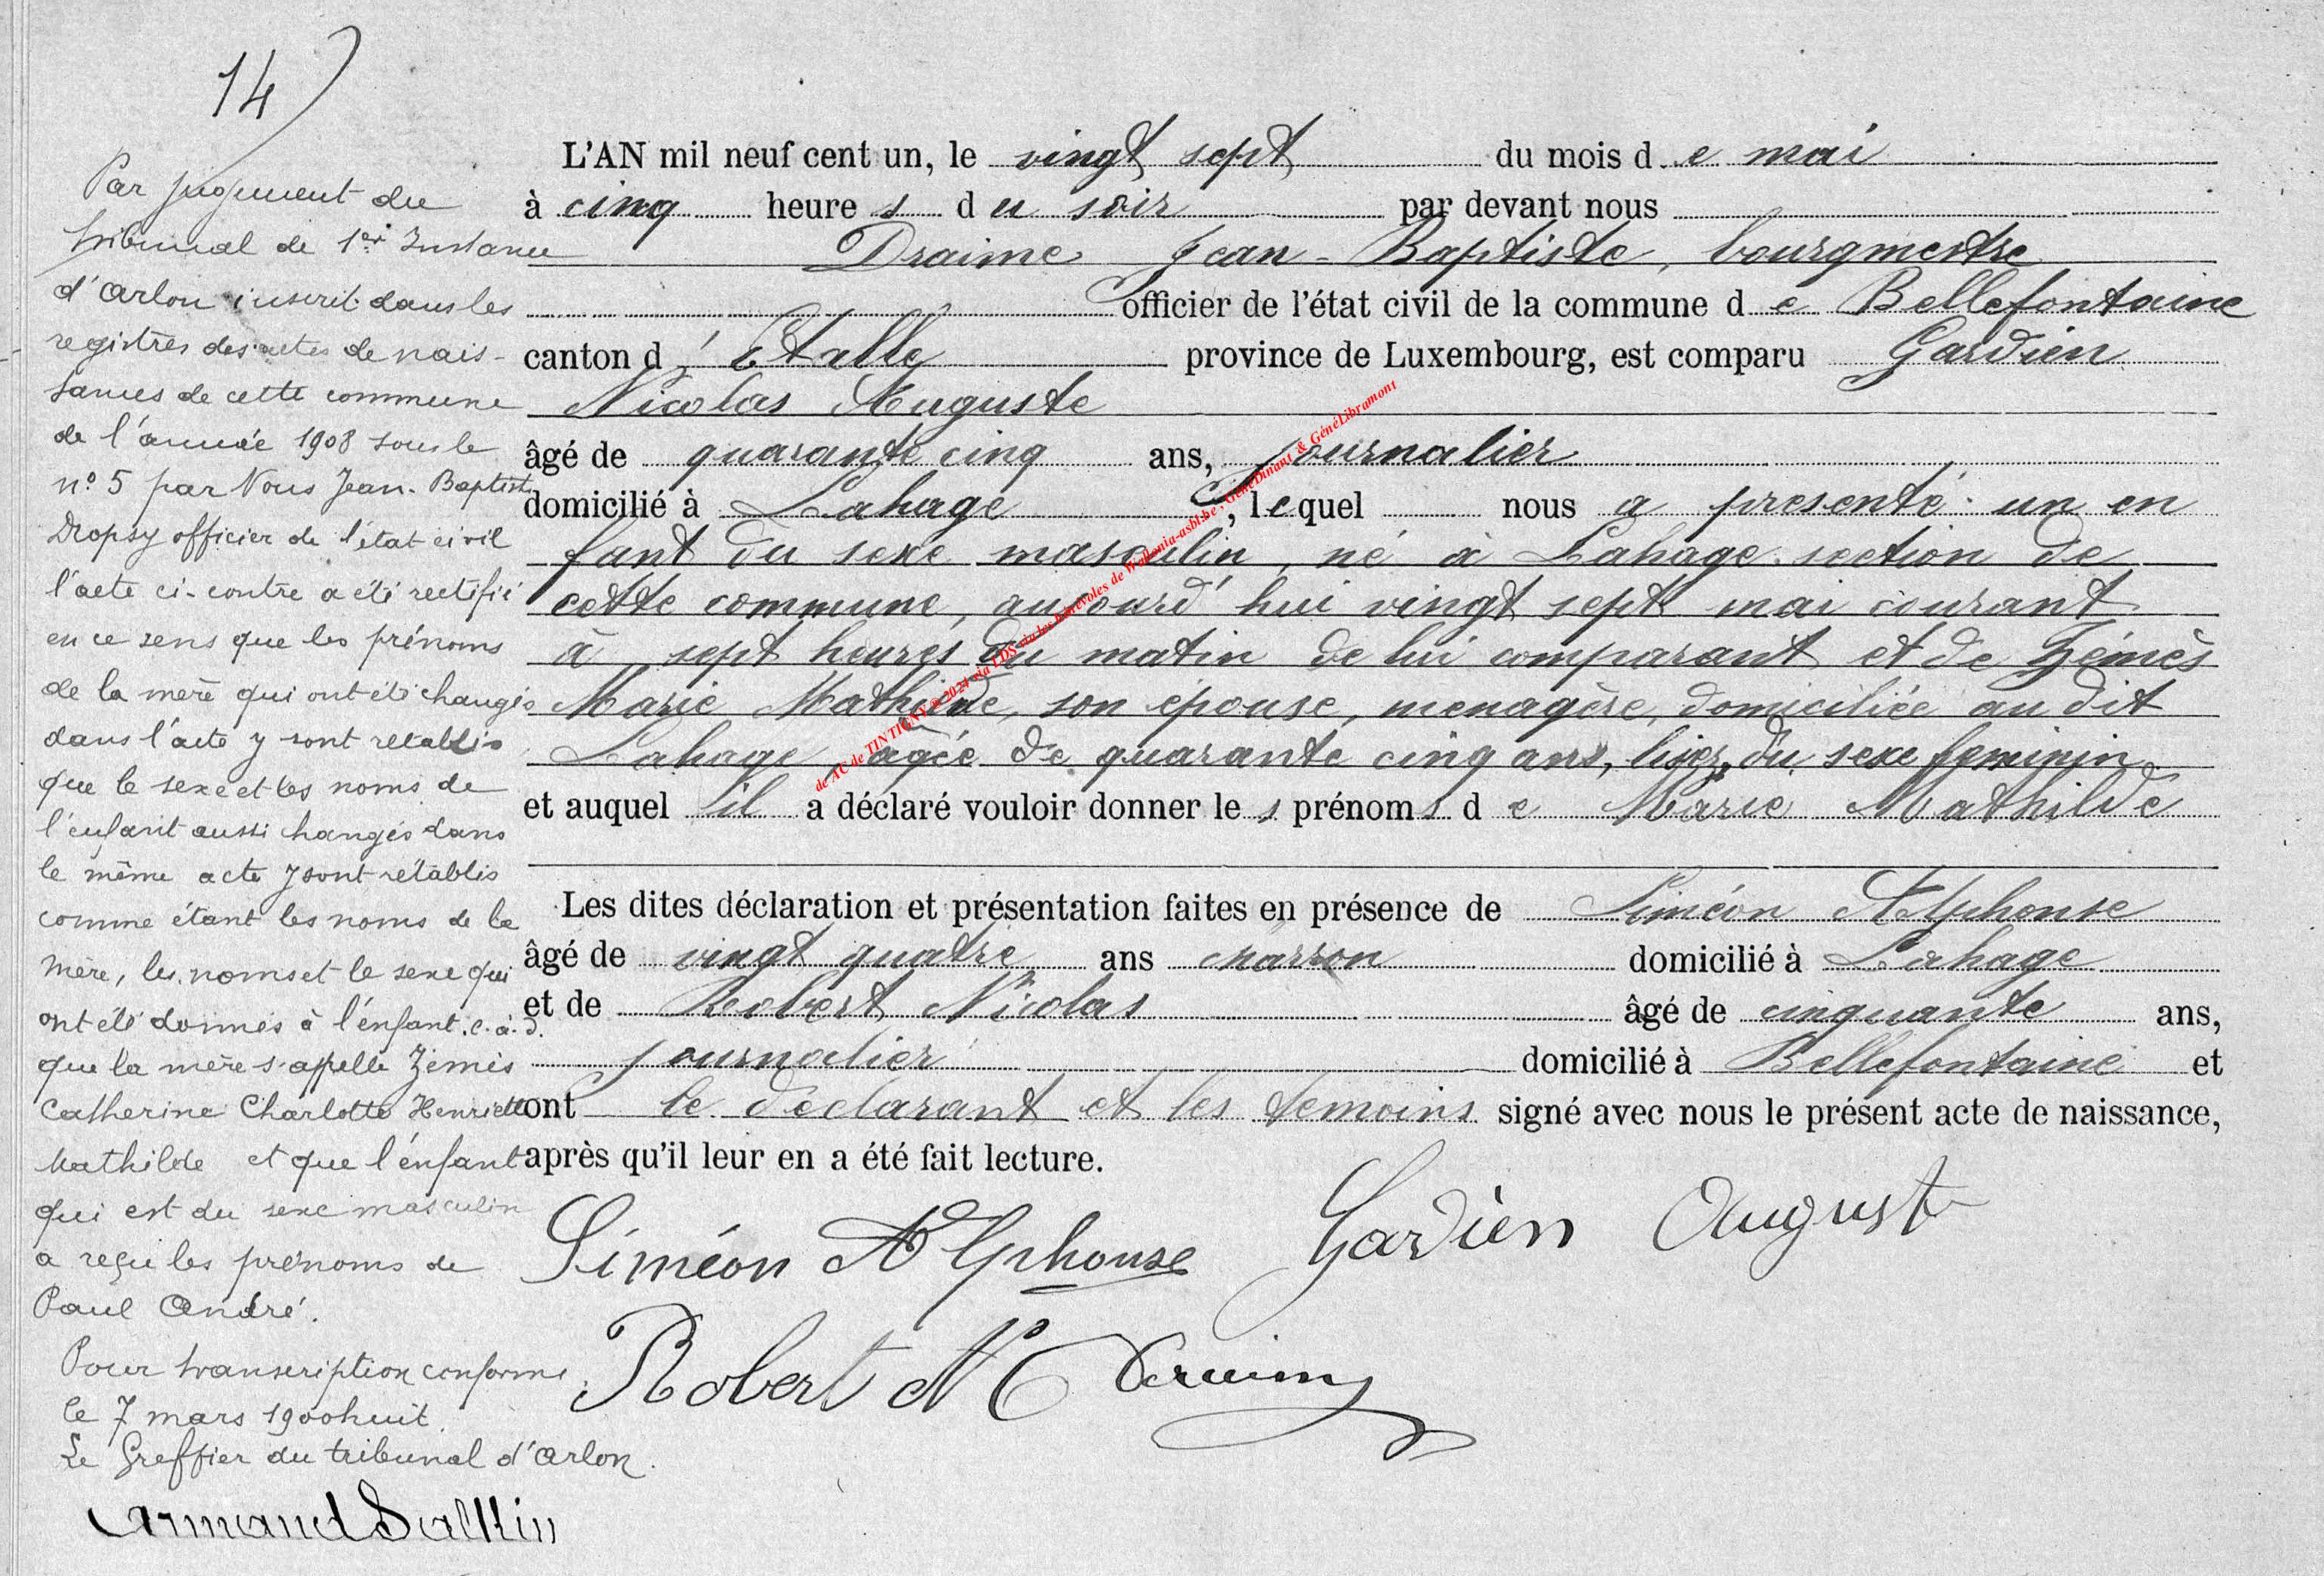 14)
Par jugement du
tribunal de 1er Instance
d'Arlon inscrit dans les
registres des actes de nais-
sances de cette commune
de l'année 1908 sous le
n° 5 par Nous Jean-Baptiste
Dropsy officier de l'état civil
l'acte ci-contre a été rectifié
en ce sens que les prénoms
de la mère qui ont été changés
dans l'acte y sont rétablis
que le sexe et les noms de
l'enfant aussi changés dans
le même acte y sont rétablis
comme étant les noms de la
mère, les noms et le sexe qui
ont été donnés à l'enfant. c. à. d.
que la mère s'appelle Zémès
Catherine Charlotte Henriette
Mathilde et que l'enfant
qui est du sexe masculin
a reçu les prénoms de
Paul André.
Pour transcription conforme
le 7 mars 1900huit
Le Greffier du tribunal d'Arlon.
Armand Salkin
L'AN mil neuf cent un, le vingt sept du mois de mai
à cinq heures du soir par devant nous
Draime Jean-Baptiste, bourgmestre
officier de l'état civil de la commune de Bellefontaine
canton d'Etalle province de Luxembourg, est comparu Gardien
Nicolas Auguste
âgé de quarante cinq ans, journalier
domicilié à Lahage, lequel nous a presenté un en
fant du sexe masculin, né à Lahage section de
cette commune, aujourd'hui vingt sept mai courant
à sept heures du matin de lui comparant et de Zémès
Marie Mathilde, son épouse, menagère, domiciliée au dit
Lahage, agée de quarante cinq ans, lisez, du sexe feminin.
et auquel il a déclaré vouloir donner les prénoms de Marie Mathilde
Les dites déclaration et présentation faites en présence de Siméon Alphonse
âgé de vingt quatre ans charron domicilié à Lahage
et de Robert Nicolas âgé de cinquante ans,
journalier domicilié à Bellefontaine et
ont le declarant et les temoins signé avec nous le présent acte de naissance,
après qu'il leur en a été fait lecture.
Siméon Alphonse Gardien August
Robert N
de AC de TINTIGNY © 2024 via LDS via les bénévoles de Wallonia-asbl.be, GénéDinant & GénéLibramont